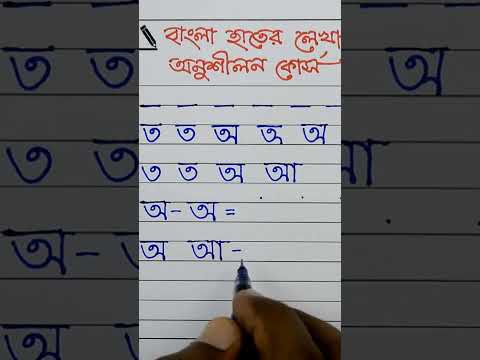 বাংলা হাতের লেখা
অনুশীলন কোর্স
ত ত অ অ
ত ত অ আ
অ - অ =
অ আ -